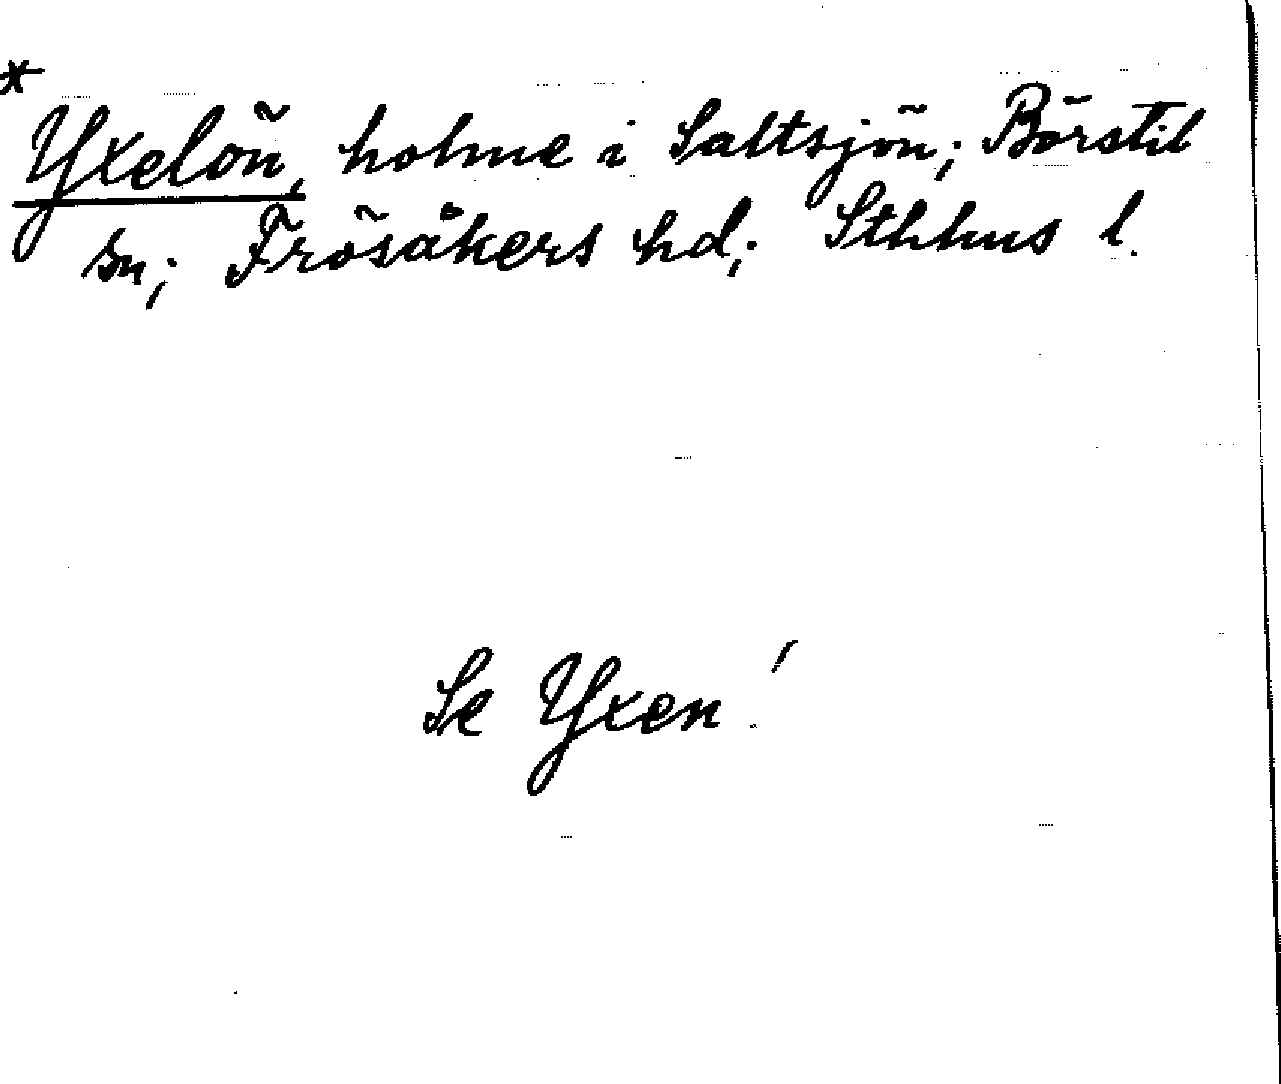 * Yxelön, holme i Saltsjön; Börstil
sn; Frösåkers hd; Sthhus l.
Se Yxen!